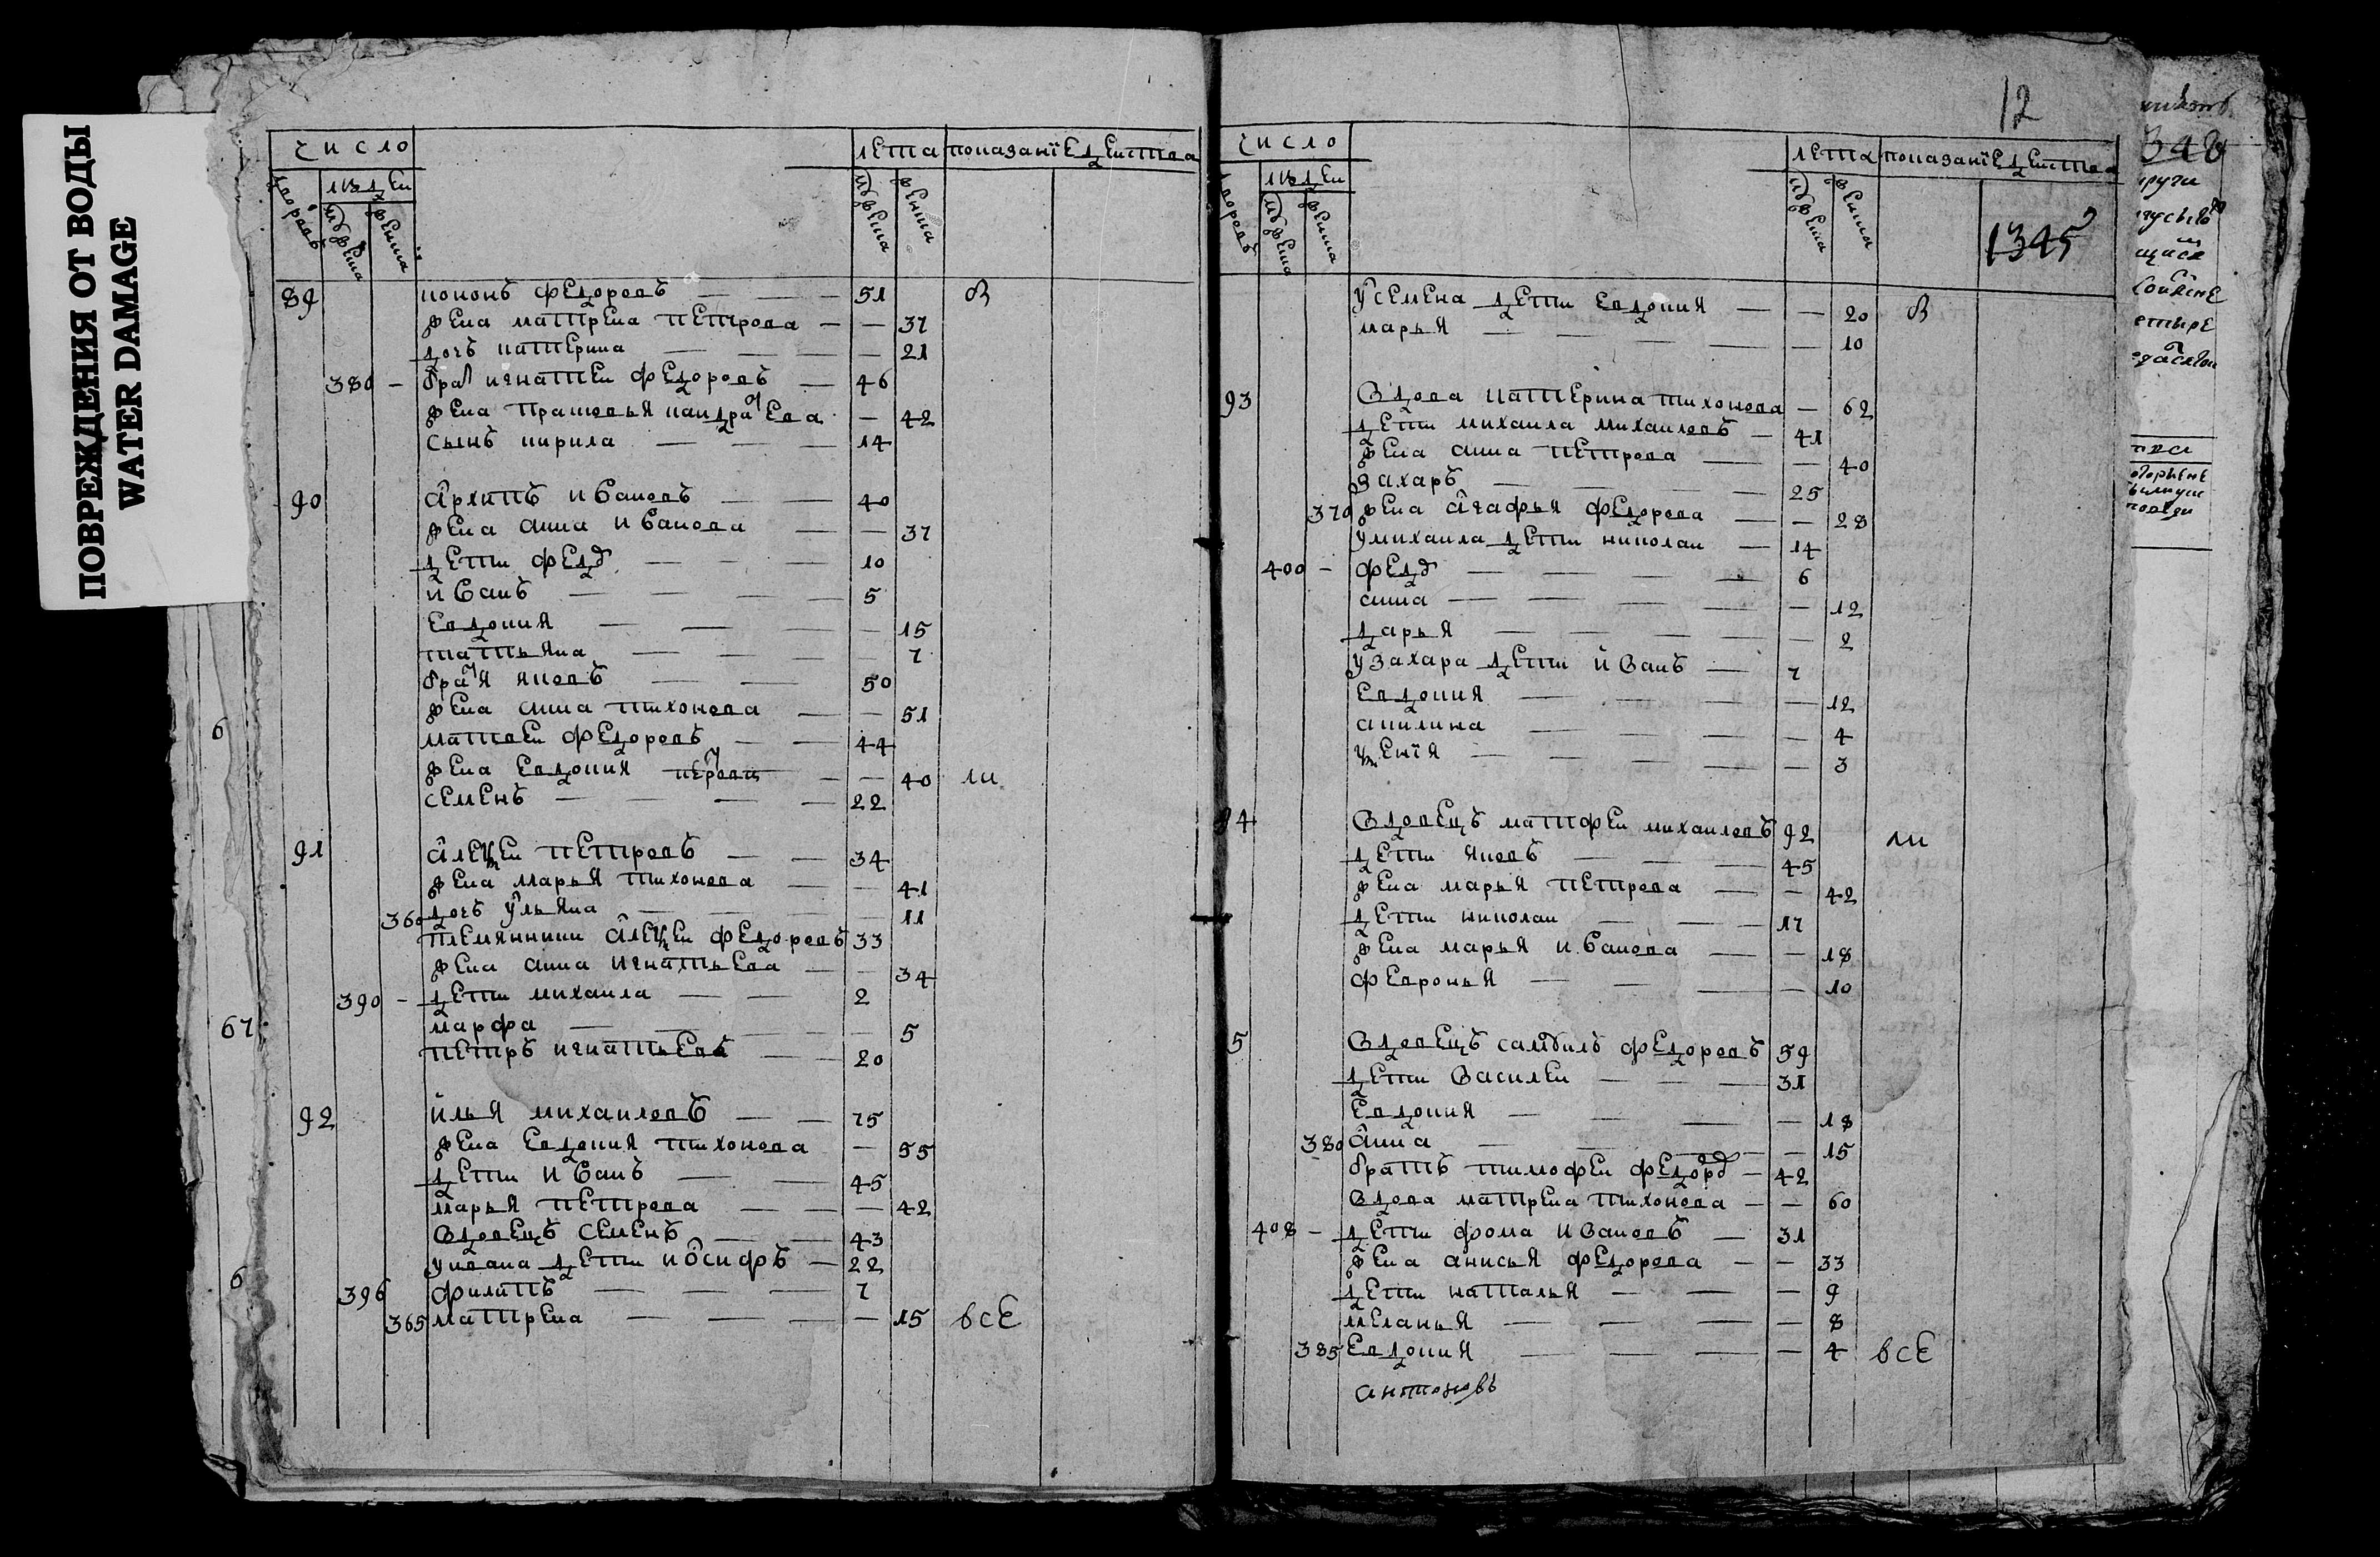 ПОВРЕЖДЕНИЯ ОТ ВОДЫ
WATER DAMAGE
число лета показанїе действа
дворовъ людей мужеска женска мужеска женска
89 кононъ федоровъ — 51 в
жена матрена петрова — — 37
дочь катерина — 21
380 — брат игнатей федоровъ — 46
жена прасковья кандратева — 42
сынъ кирила — 14
90 архипъ иванов — 40
жена анна иванова — 37
дети федор — 10
иванъ — 5
евдокия — 15
татьяна — 7
братя яковъ — 50
жена анна тихонова — 51
матвей федоровъ — 44
жена евдокия — 40 ли
семенъ — 22
91 алексей петровъ — 34
жена марья тихонова — 41
360 дочь ульяна — 11
племянники алексей федоровъ 33
жена анна игнатьева — 34
390 — дети михаила — 2
марфа — 5
петръ игнатьевъ — 20
92 илья михаиловъ — 75
жена евдокия тихонова — 55
дети иванъ — 45
марья петрова — 42
вдовецъ семенъ — 43
у ивана дети иосифъ — 22
396 филипъ — 7
365 матрена — 15 все
6
67
6
12
число лета показанїе действа
дворовъ людей мужеска женска мужеска женска
1345
у семена дети евдокия — — 20 в
марья — 10
93 вдова катерина тихонова — 62
дети михаила михаиловъ — 41
жена анна петрова — 40
захаръ — 25
370 жена агафья федорова — 28
у михаила дети николаи — 14
400 — федор — 6
анна — 12
дарья — 2
у захара дети иванъ — 7
евдокия — 12
акилина — 4
ксенїя — 3
94 вдовецъ матфеи михаиловъ 92 ли
дети яковъ — 45
жена марья петрова — 42
дети николаи — 17
жена марья иванова — 18
февронья — 10
5 вдовецъ самоилъ федоровъ 59
дети василеи — 31
евдокия — 18
380 анна — 15
братъ тимофеи федоров — 42
вдова матрена тихонова — — 60
408 — дети фома ивановъ — 31
жена анисья федорова — — 33
дети наталья — 9
меланья — 8
385 евдокия — 4 все
антоновъ